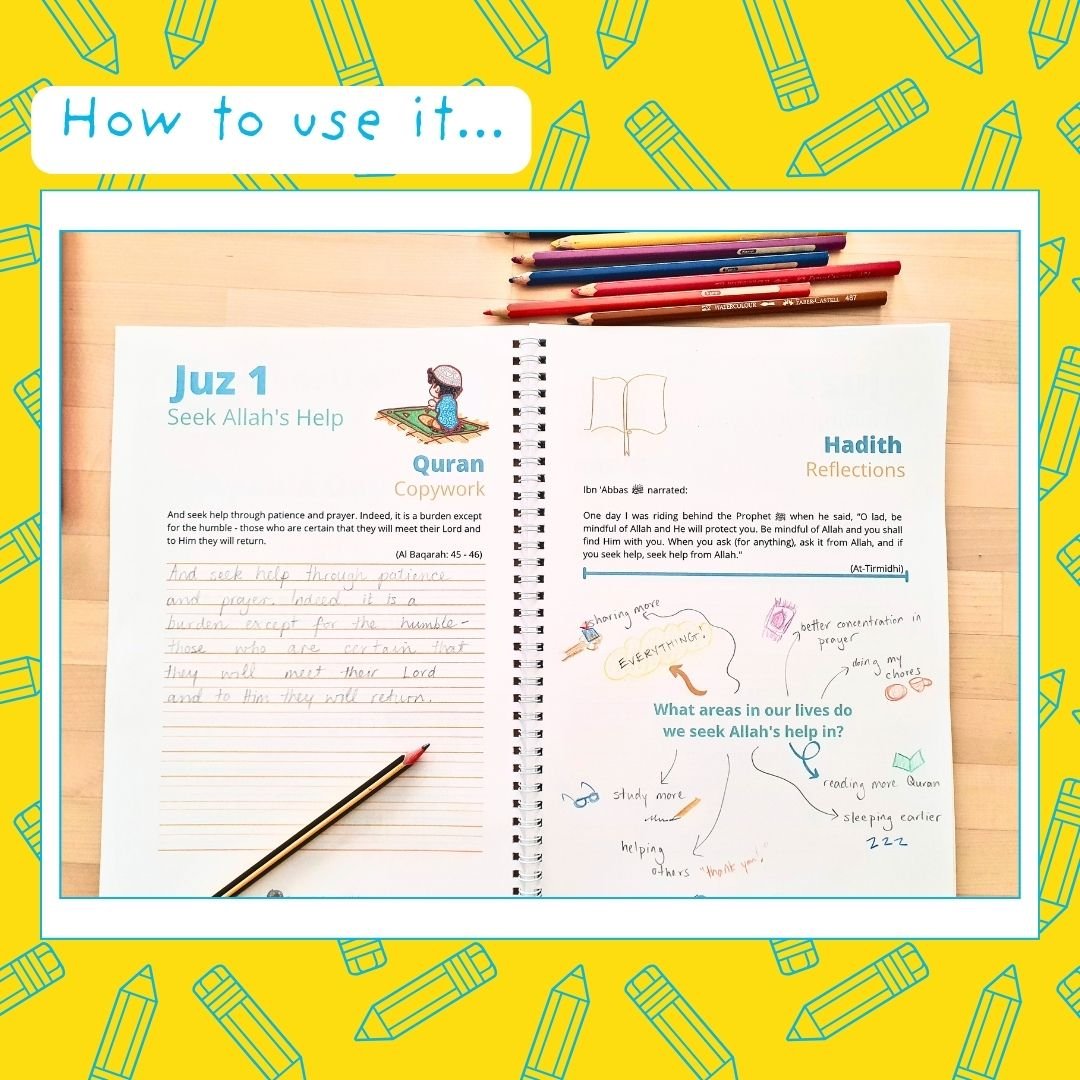 How to use it...
Juz 1
Seek Allah's Help
Quran
Copywork
And seek help through patience and prayer. Indeed, it is a burden except
for the humble - those who are certain that they will meet their Lord and
to Him they will return.
(Al Baqarah: 45 - 46)
And seek help through patience
and prayer. Indeed it is a
burden except for the humble -
those who are certain that
they will meet their Lord
and to Him they will return.
WATERCOLOUR FABER-CASTELL 487
Hadith
Reflections
Ibn 'Abbas narrated:
One day I was riding behind the Prophet ﷺ when he said, "O lad, be
mindful of Allah and He will protect you. Be mindful of Allah and you shall
find Him with you. When you ask (for anything), ask it from Allah, and if
you seek help, seek help from Allah."
(At-Tirmidhi)
sharing more
EVERYTHING!
better concentration in
prayer
doing my
chores
What areas in our lives do
we seek Allah's help in?
reading more Quran
study more
sleeping earlier
zzz
helping
others "thank you!"